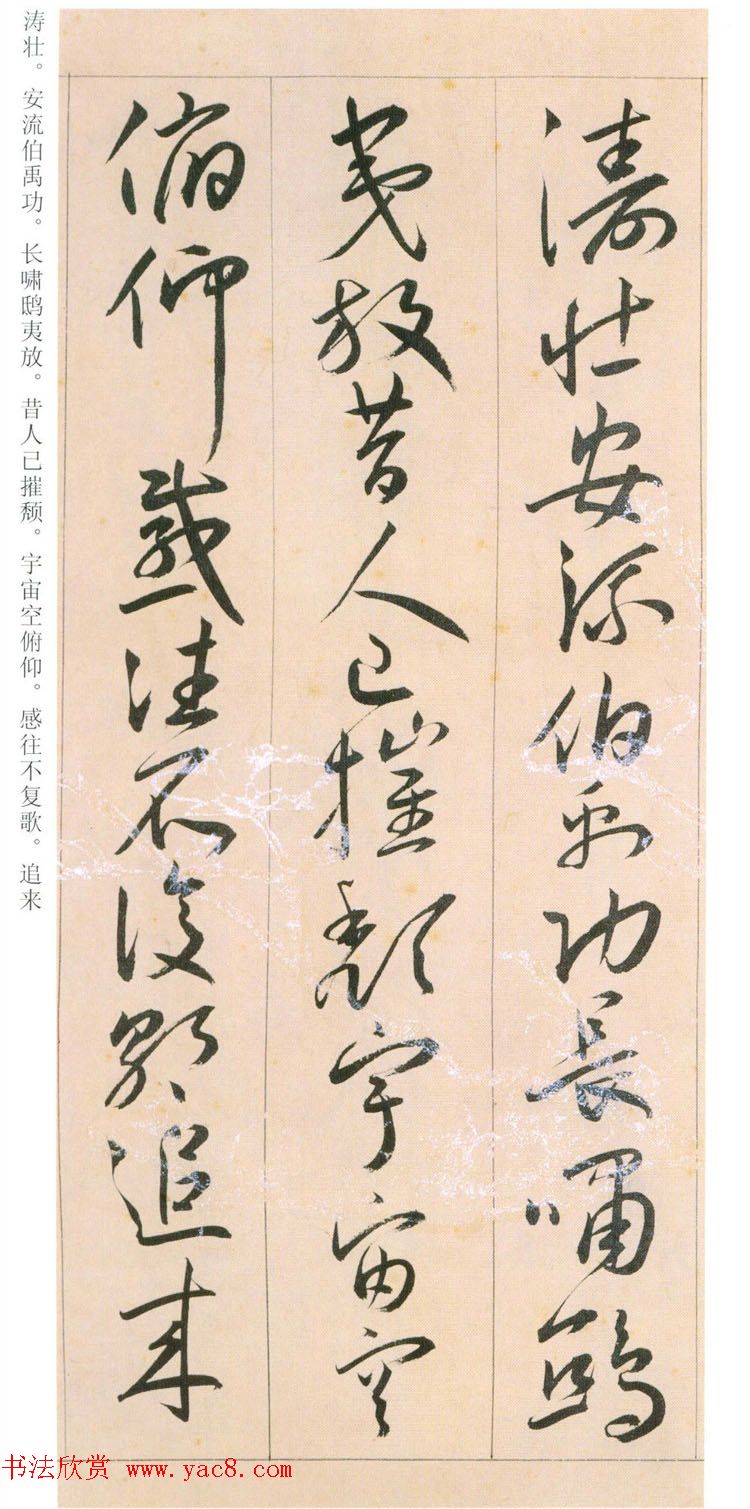 濤壮安流伯禹功長嘯鴟
夷放昔人已摧頽宇宙空
俯仰感往不復歌追来
涛壮。安流伯禹功。长啸鸱夷放。昔人已摧颓。宇宙空俯仰。感往不复歌。追来
书法欣赏 www.yac8.com